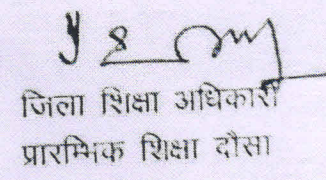 जिला शिक्षा अधिकारी
प्रारम्भिक शिक्षा दौसा